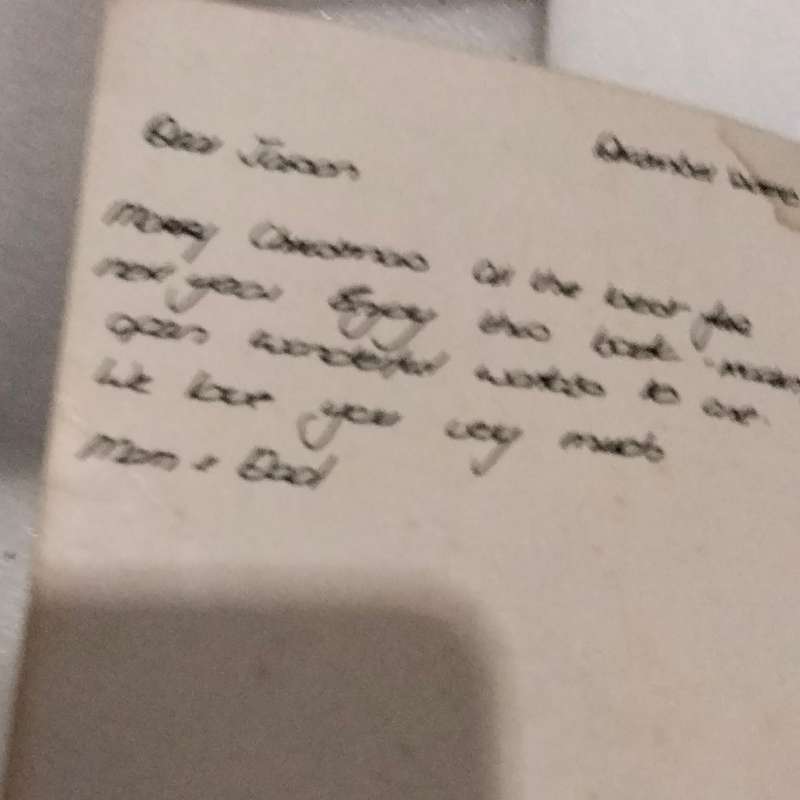 Dear Jason December
Merry Christmas All the best for
new year Enjoy this book.
open wonderful worlds to
We love you very much
Mom + Dad